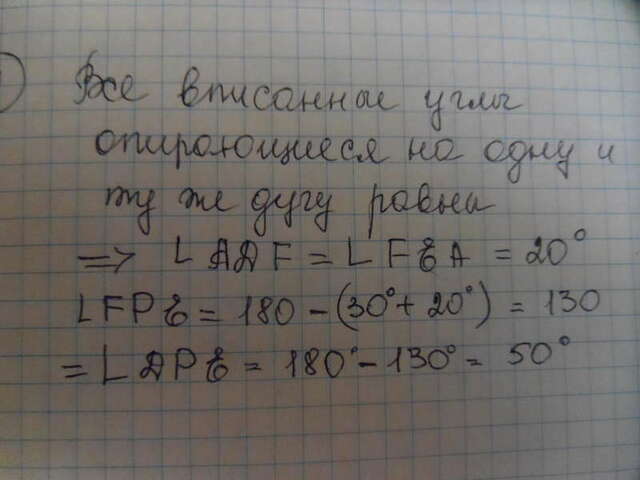 ) Все вписанные углы
опирающиеся на одну и
ту же дугу равны
=> ∠ADF = ∠FEA = 20°
∠FPE = 180 - (30° + 20°) = 130
= ∠DPE = 180° - 130° = 50°